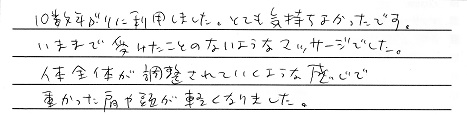 10数年ぶりに利用しました。とても気持ちよかったです。
いままで受けたことのないようなマッサージでした。
体全体が調整されていくような感じで
重かった肩や頭が軽くなりました。